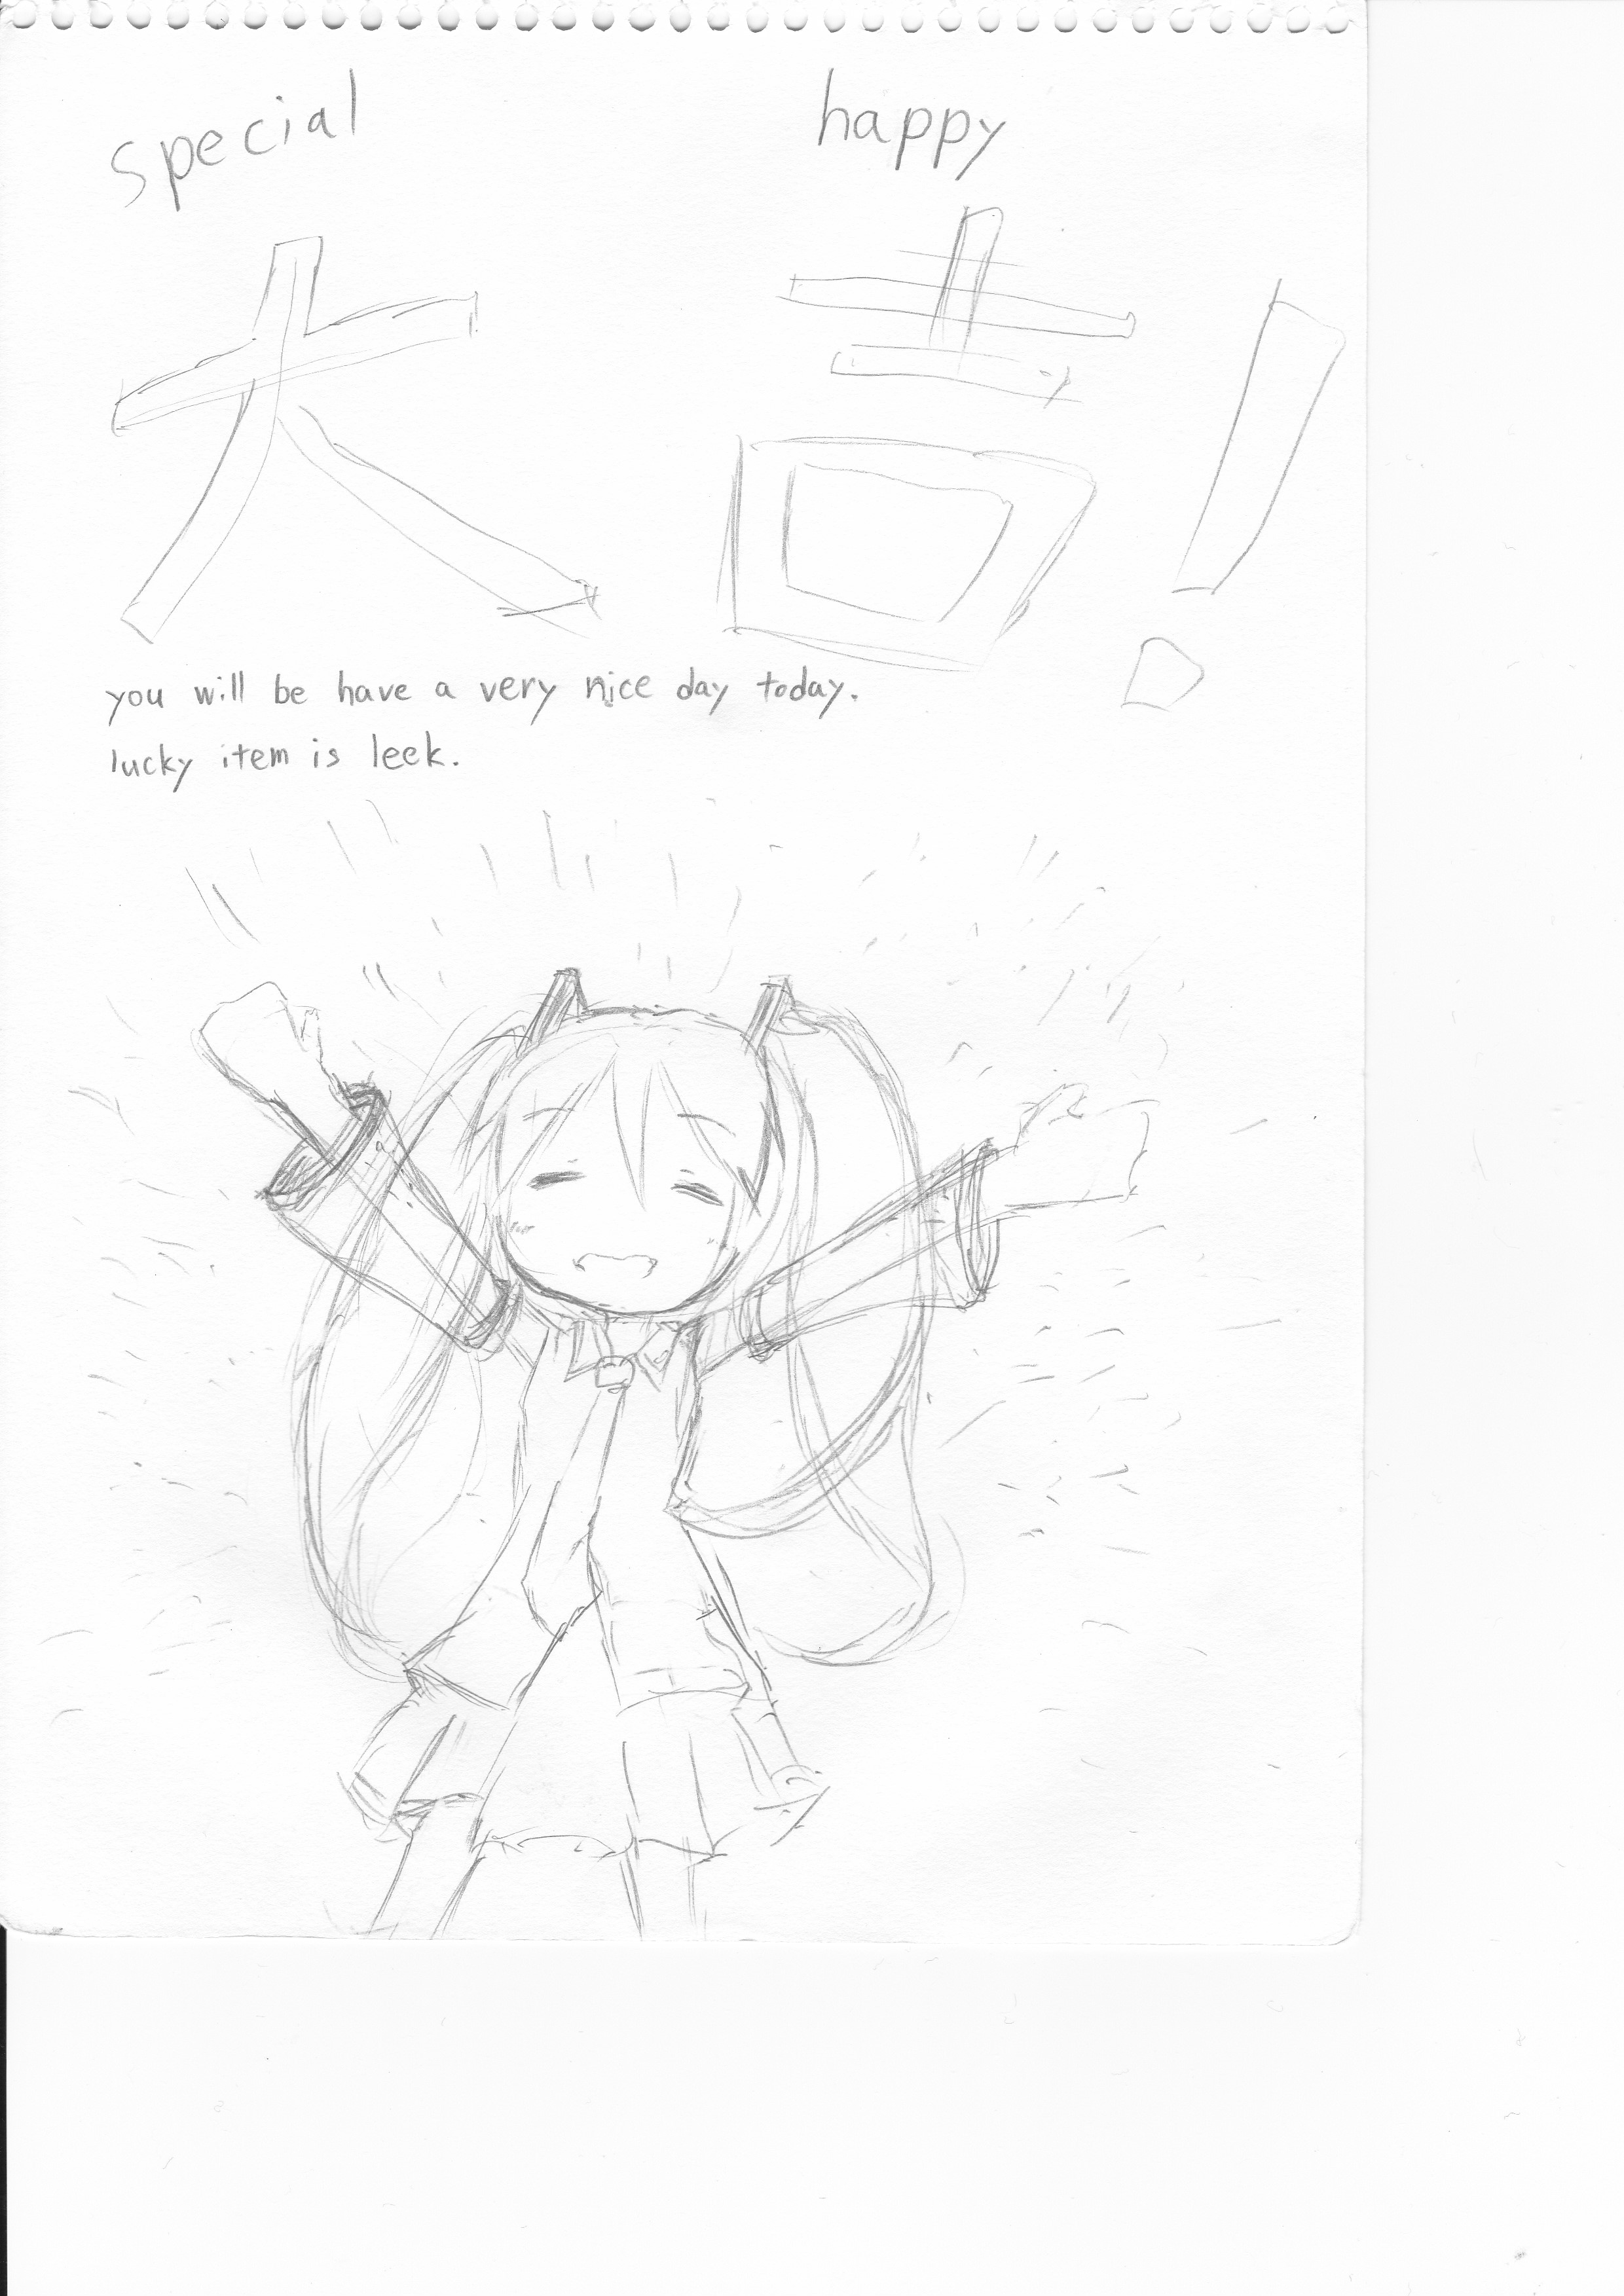 special happy
大吉!
you will be have a very nice day today.
lucky item is leek.